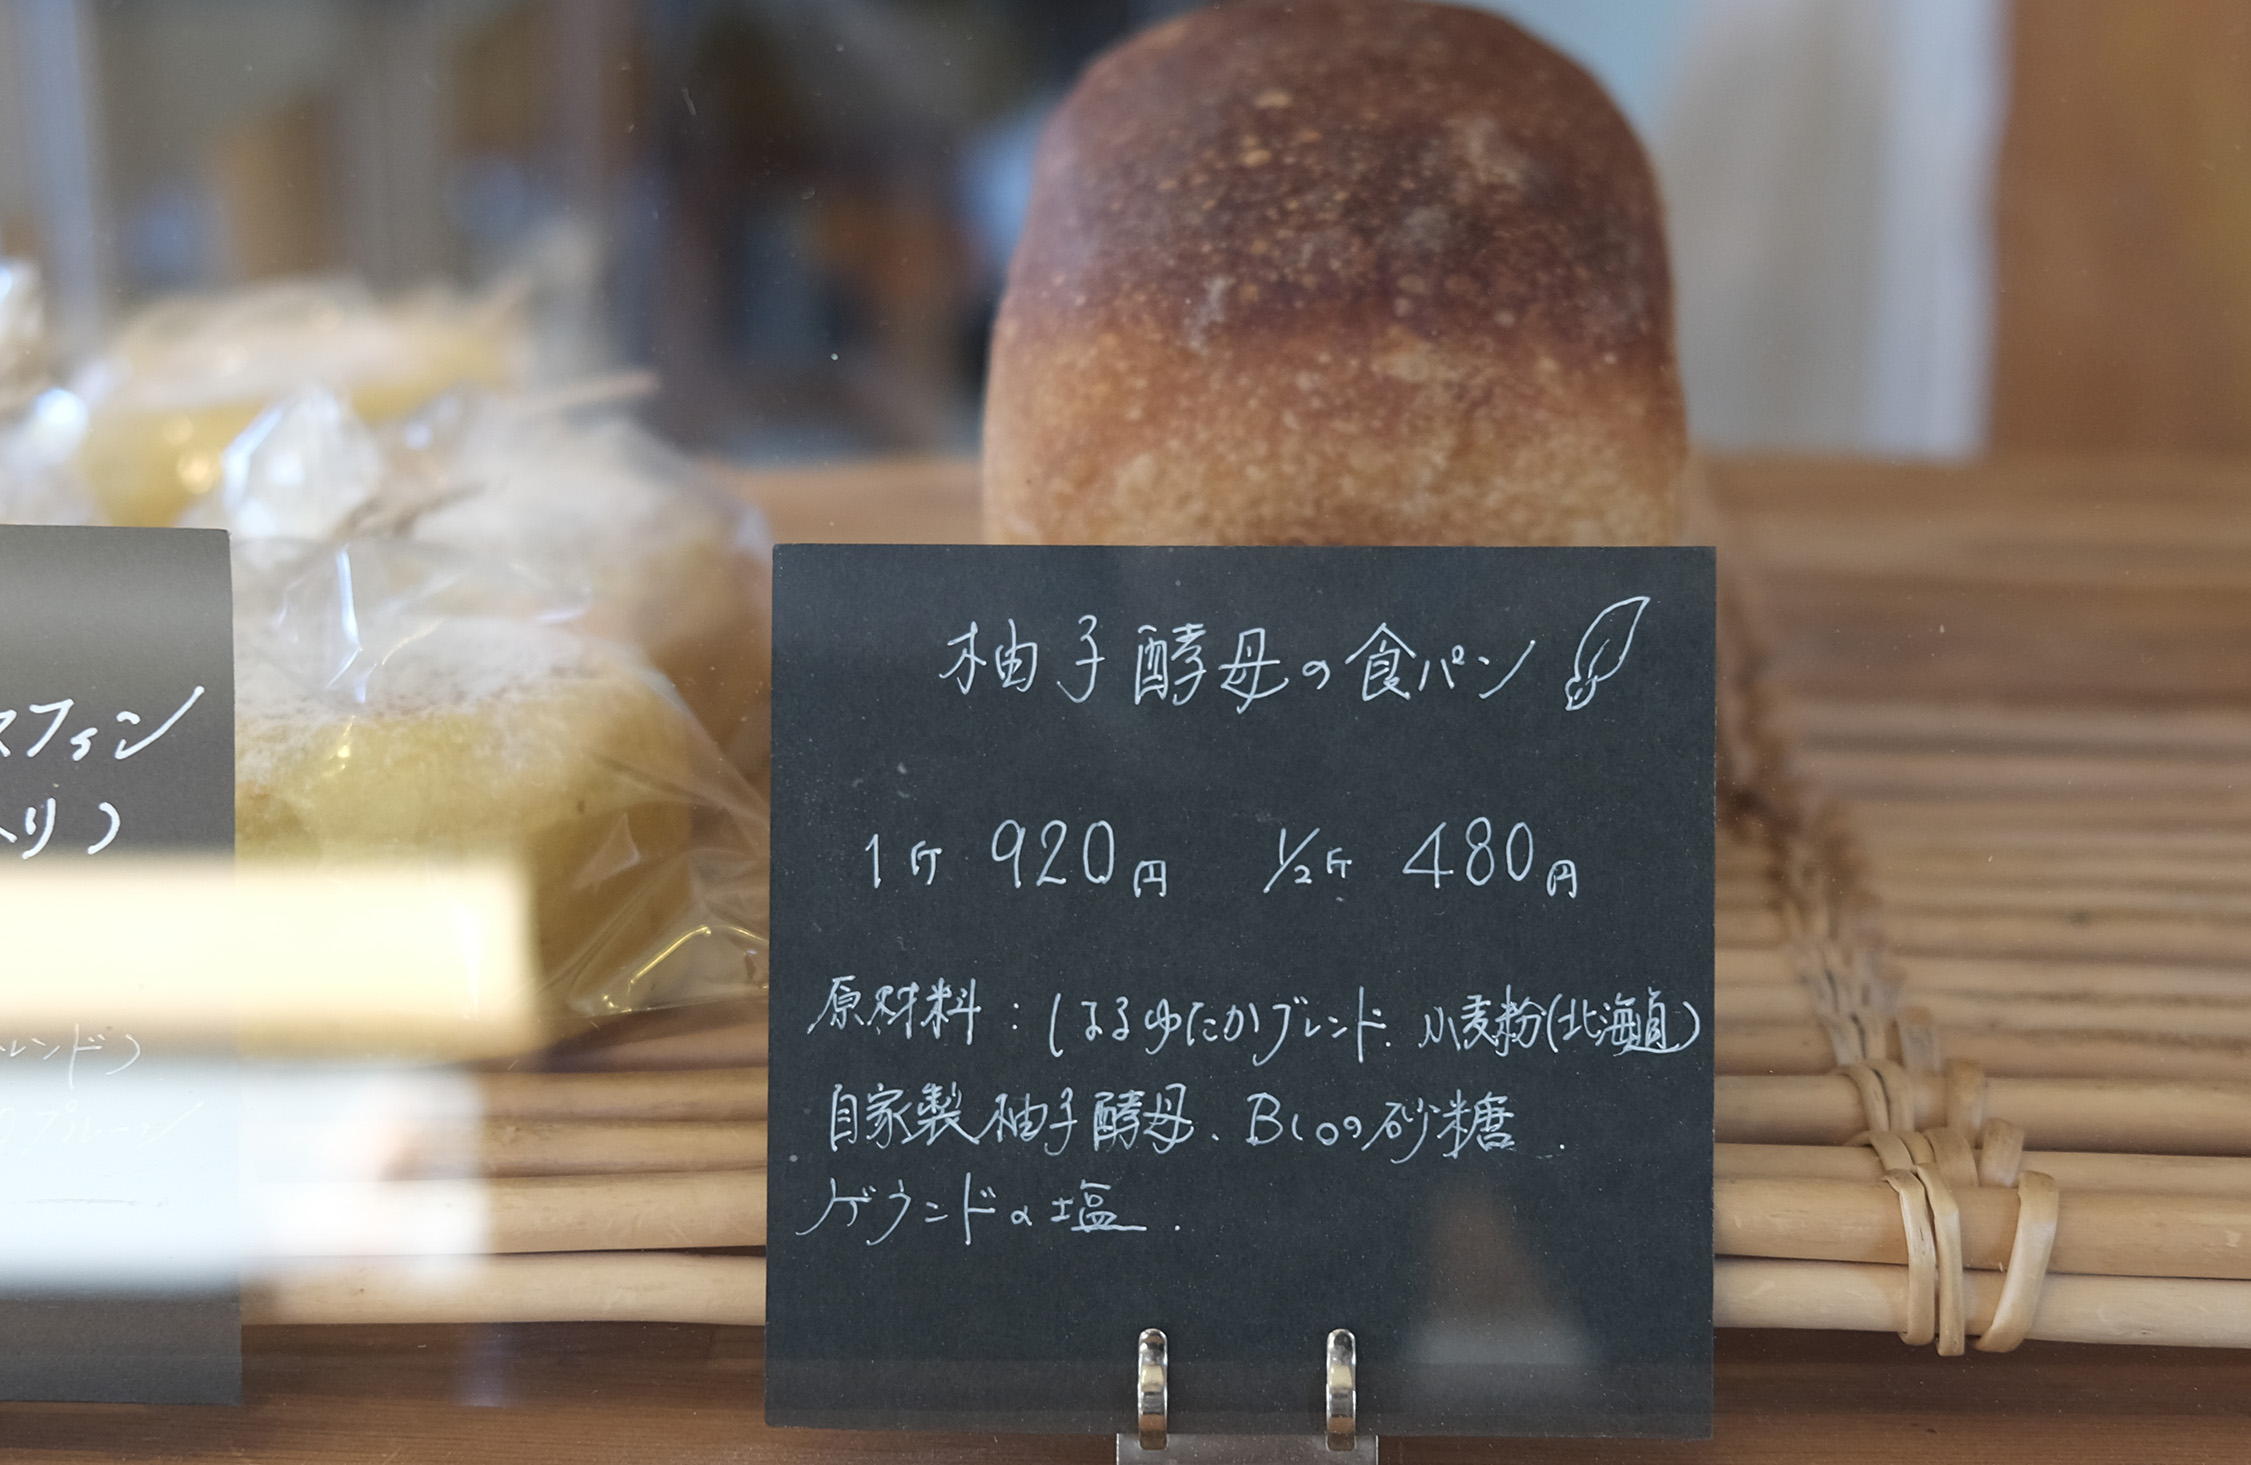 スフィン
入り)
レンド)
柚子酵母の食パン
1斤 920円 1/2斤 480円
原材料:はるゆたかブレンド.小麦粉(北海道)
自家製柚子酵母.Bioの砂糖.
ゲランドの塩.